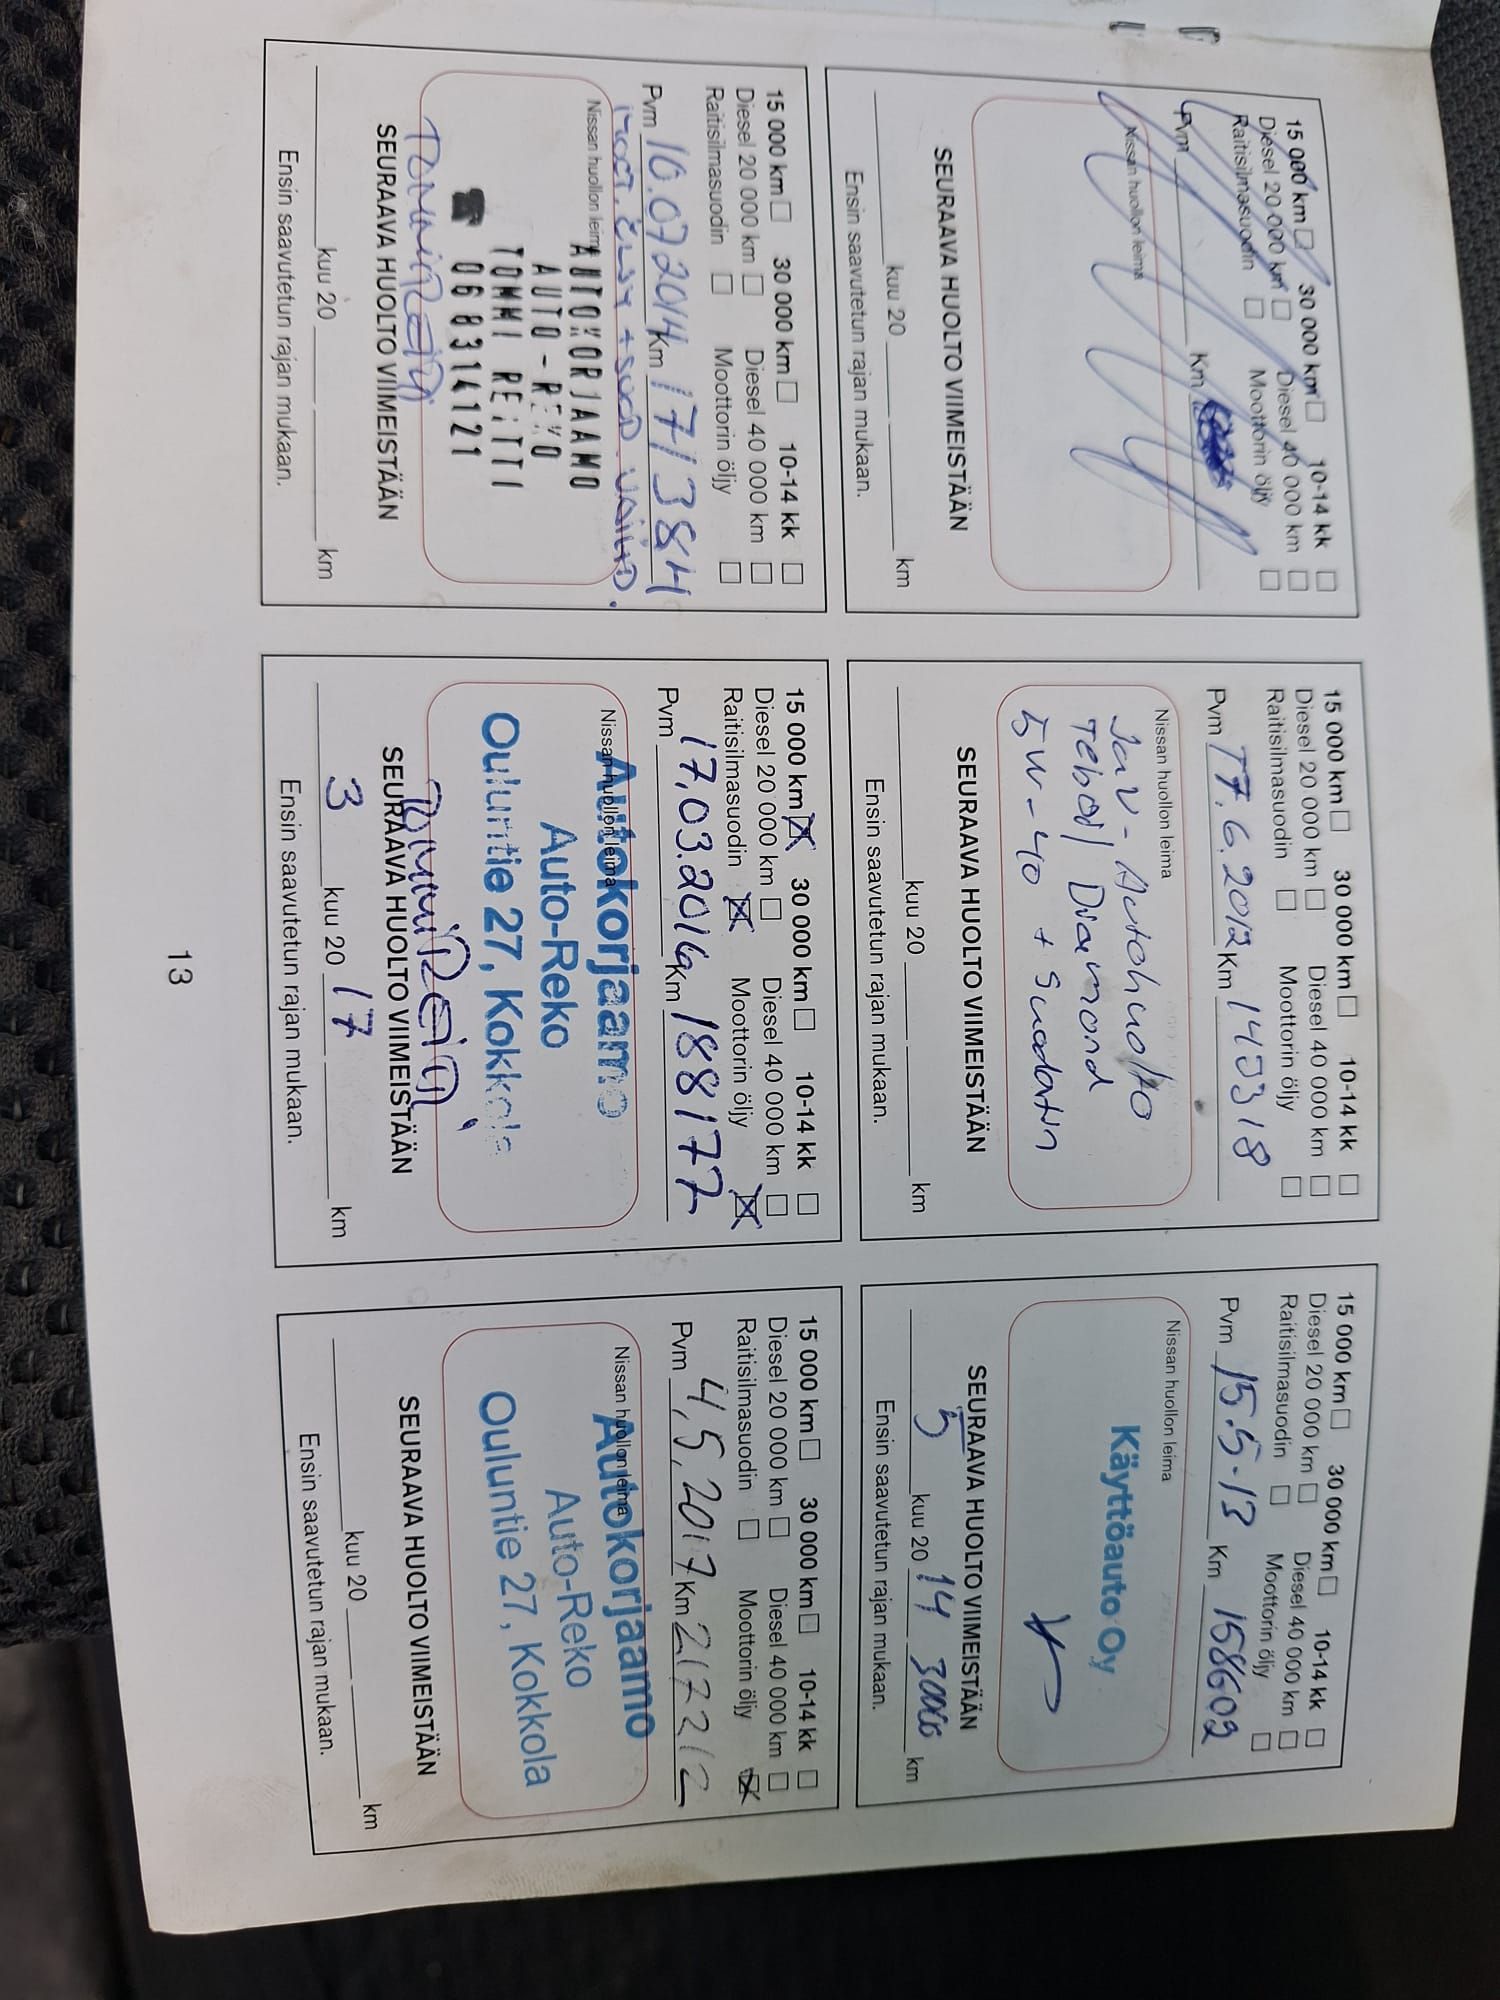 15 000 km 30 000 km 10-14 kk
Diesel 20 000 km Diesel 40 000 km
Raitisilmasuodin Moottorin öljy
Pvm Km
Nissan huollon leima
SEURAAVA HUOLTO VIIMEISTÄÄN
kuu 20 km
Ensin saavutetun rajan mukaan.
15 000 km 30 000 km 10-14 kk
Diesel 20 000 km Diesel 40 000 km
Raitisilmasuodin Moottorin öljy
Pvm 17.6.2012 Km 140318
Nissan huollon leima
JaV-Autohuolto
Teboil Diamond
5W-40 + Suodatin
SEURAAVA HUOLTO VIIMEISTÄÄN
kuu 20 km
Ensin saavutetun rajan mukaan.
15 000 km 30 000 km 10-14 kk
Diesel 20 000 km Diesel 40 000 km
Raitisilmasuodin Moottorin öljy
Pvm 15.5-13 Km 158602
Nissan huollon leima
Käyttöauto Oy
SEURAAVA HUOLTO VIIMEISTÄÄN
5 kuu 20 14 30000 km
Ensin saavutetun rajan mukaan.
15 000 km 30 000 km 10-14 kk
Diesel 20 000 km Diesel 40 000 km
Raitisilmasuodin Moottorin öljy
Pvm 10.07.2014 Km 171384
moot. öljy + suod. vaihto.
Nissan huollon leima
AUTOKORJAAMO
AUTO-REKO
TOMMI REITTI
☎ 06 8314121
SEURAAVA HUOLTO VIIMEISTÄÄN
kuu 20 km
Ensin saavutetun rajan mukaan.
15 000 km 30 000 km 10-14 kk
Diesel 20 000 km Diesel 40 000 km
Raitisilmasuodin Moottorin öljy
Pvm 17.03.2016 Km 188177
Nissan huollon leima
Autokorjaamo
Auto-Reko
Ouluntie 27, Kokkola
SEURAAVA HUOLTO VIIMEISTÄÄN
3 kuu 20 17 km
Ensin saavutetun rajan mukaan.
15 000 km 30 000 km 10-14 kk
Diesel 20 000 km Diesel 40 000 km
Raitisilmasuodin Moottorin öljy
Pvm 4,5,2017 Km 217212
Nissan huollon leima
Autokorjaamo
Auto-Reko
Ouluntie 27, Kokkola
SEURAAVA HUOLTO VIIMEISTÄÄN
kuu 20 km
Ensin saavutetun rajan mukaan.
13